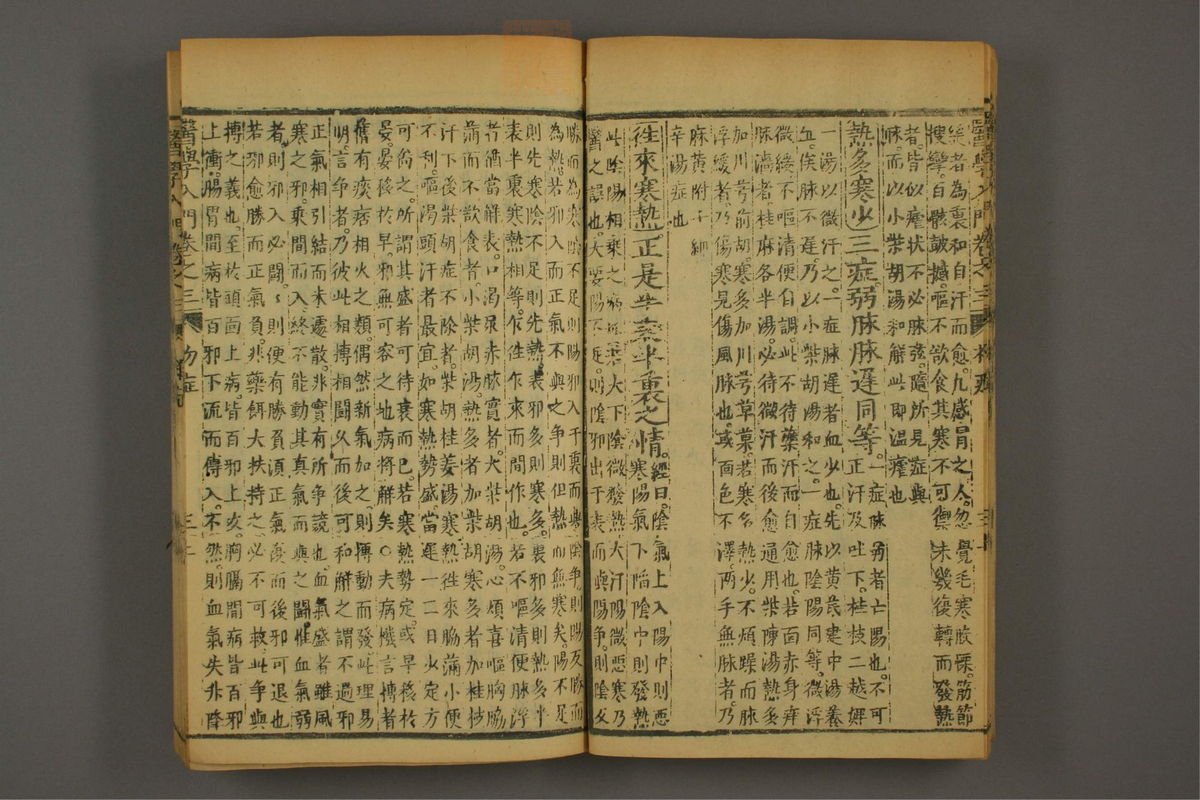 絃者為裏和自汗而愈九感冒之人忽覺毛寒股慄筋節
搜攣百骸皷撼嘔不欲食其寒不可禦未幾復轉而發熱
者皆似瘧状不必脉弦隨所見症與
脉而以小柴胡湯和解此即温瘧也
熱多寒少三症弱脉脉遲同等
一症脉弱者亡陽也不可
正汗及吐下桂枝二越婢
一湯以微汗之一症脉遲者血少也先以黄芪建中湯養
五俟脉不遲乃以小柴胡湯和之一症脉陰陽同等微浮
微緩不嘔清便自調此不待藥汗而自愈也若面赤身痒
脉濇者桂麻各半湯必待微汗而後愈通用柴陳湯熱多
加川芎前胡寒多加川芎草菓若寒多熱少不煩躁而脉
浮緩者乃傷寒見傷風脉也或面色不澤兩手無脉者乃
麻黄附子細
辛湯症也
往來寒熱正是半表半裏之情
經曰陰氣上入陽中則惡
寒陽氣下陷陰中則發熱
此陰陽相乘之病大下陰微發熱大汗陽微惡寒乃
醫之誤也大要陽不足則陰邪出于表而與陽爭則陰反
勝而為寒陰不足則陽邪入于裏而與陰爭則陽反勝而
為熱若邪入而正氣不與之爭但熱而無寒矣陽不足
則先寒陰不足則先熱表邪多則寒多裏邪多則熱多半
表半裏寒熱相等乍往乍來而間作也若不嘔清便脉浮
者猶當解表口渴尿赤脉實者大柴胡湯心煩喜嘔胸脇
滿而不欲食者小柴胡湯熱多者加柴胡寒多者加桂枝
汗下後柴胡症不除者柴胡桂姜湯寒熱徃來脇滿小便
不利嘔渴頭汗者最宜如寒熱勢盛當遲一二日少定方
可為之所謂其盛者可待衰而已若寒熱勢定或早移於
晏晏移於早邪無可容之地病將解矣○夫病機言搏者
舊有痰病相火之類偶然新氣加之則搏動而發此理易
明言爭者乃彼此相搏相鬪久而後可和解之謂不過邪
正氣相引結而未遽散非實有所爭競也血氣盛者雖風
寒之邪乘間而入終不能動其真氣而與之鬪惟血氣弱
者則邪入必鬪則便有勝負須正氣復而後邪可退也
若邪愈勝而正氣負非藥餌大扶持之必不可救此爭與
搏之義也至於頭面上病皆百邪上攻胸膈間病皆百邪
上衝腸胃間病皆百邪下流而傳入不然則血氣失升降
醫學入門卷之三